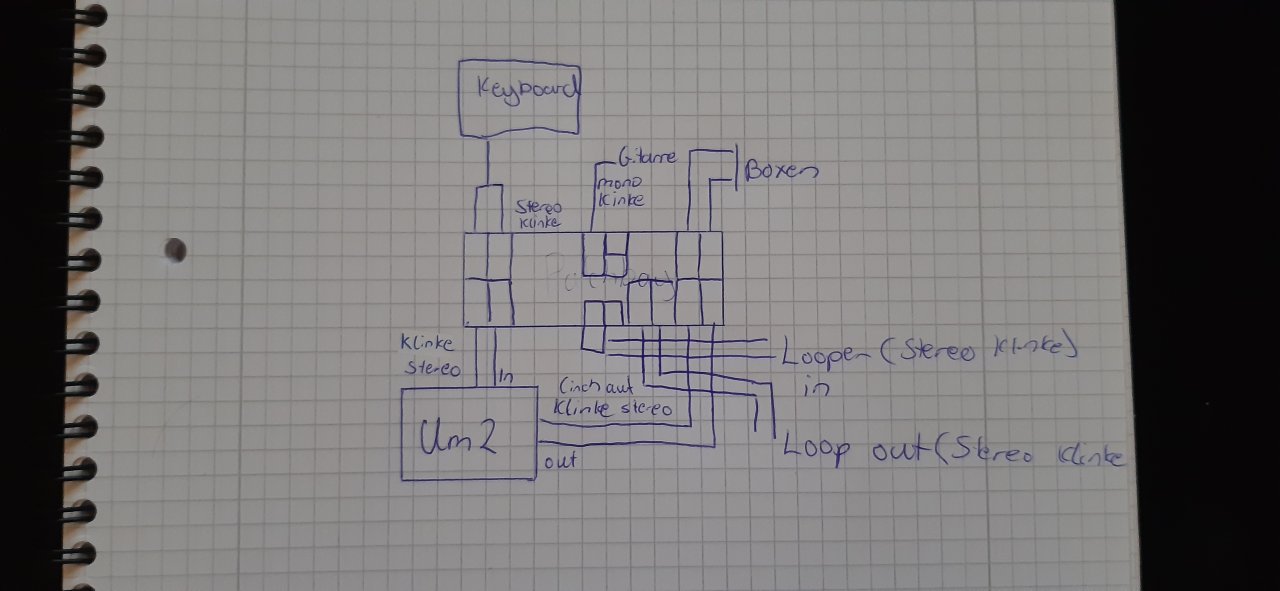 Keyboard
Gitarre
mono
Klinke
Boxen
Stereo
Klinke
Klinke
Stereo
In
Looper (Stereo Klinke)
in
Cinch auf
Klinke stereo
Um2
out
Loop out (Stereo Klinke